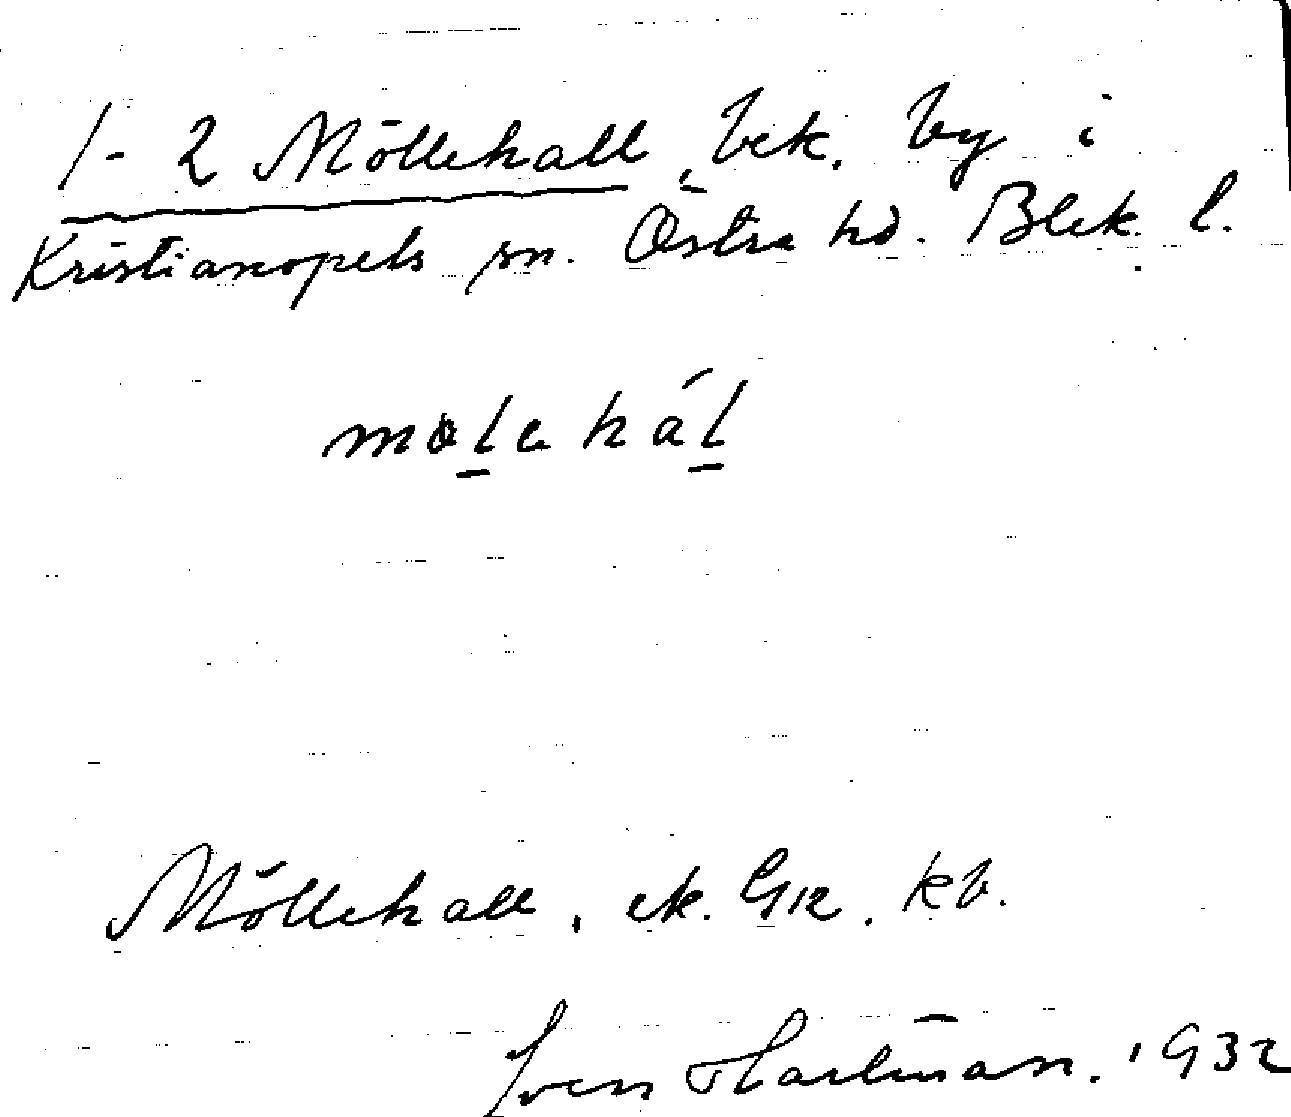 1-2 Möllehall, bek. by i
Kristianopels sn. Östra hd. Blek. l.
Möllehall, ek. GR. kb.
Sven Hartman. 1932